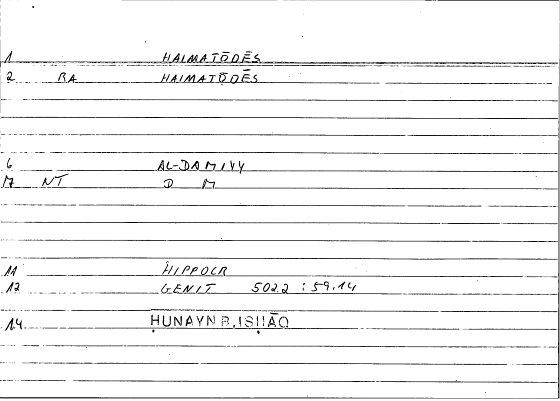 1 HAIMATŌDĒS
2 RA HAIMATŌDĒS
6 AL-DAMIYY
7 NT D M
11 HIPPOCR
12 GENIT 502.2 : 59.14
14 ḤUNAYN B. ISḤĀQ